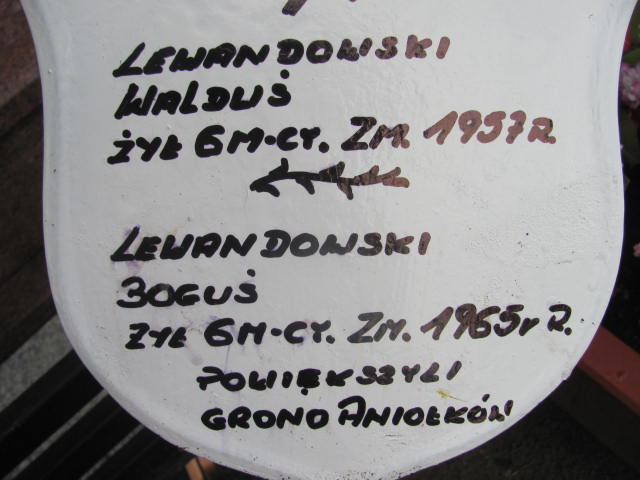 LEWANDOWSKI
WALDUŚ
ŻYŁ 6 M-CY. ZM. 1957 R.
LEWANDOWSKI
BOGUŚ
ŻYŁ 6 M-CY. ZM. 1965 r R.
POWIĘKSZYLI
GRONO ANIOŁKÓW